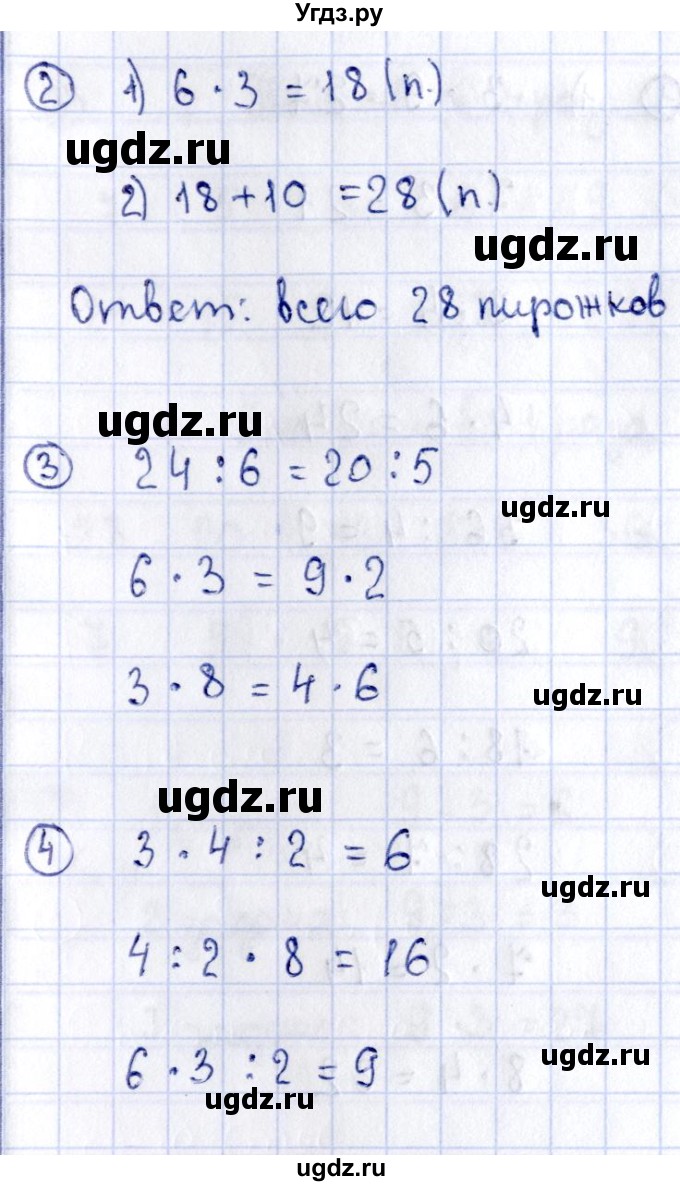 Угдз.ру
2 1) 6 · 3 = 18 (п.)
ugdz.ru
2) 18 + 10 = 28 (п.)
ugdz.ru
Ответ: всего 28 пирожков
ugdz.ru
3 24 : 6 = 20 : 5
ugdz.ru
6 · 3 = 9 · 2
3 · 8 = 4 · 6
ugdz.ru
ugdz.ru
4 3 · 4 : 2 = 6
ugdz.ru
4 : 2 · 8 = 16
6 · 3 : 2 = 9
ugdz.ru
ugdz.ru
ugdz.ru